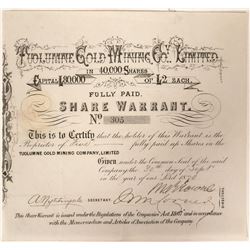 TUOLUMNE GOLD MINING CO. LIMITED.
IN 40,000 SHARES
CAPITAL £80,000 OF £2 EACH.
FULLY PAID.
SHARE WARRANT.
No 305
This is to Certify that the holder of this Warrant is the
Proprietor of Five fully paid up Shares in the
TUOLUMNE GOLD MINING COMPANY, LIMITED
Given under the Common Seal of the said
Company the 30th day of Sept.
in the year of our Lord 1870
A. Nightingale SECRETARY.
This Share Warrant is issued under the Regulations of the Companies' Act, 1867 and in accordance
with the Memorandum and Articles of Association of the Company.